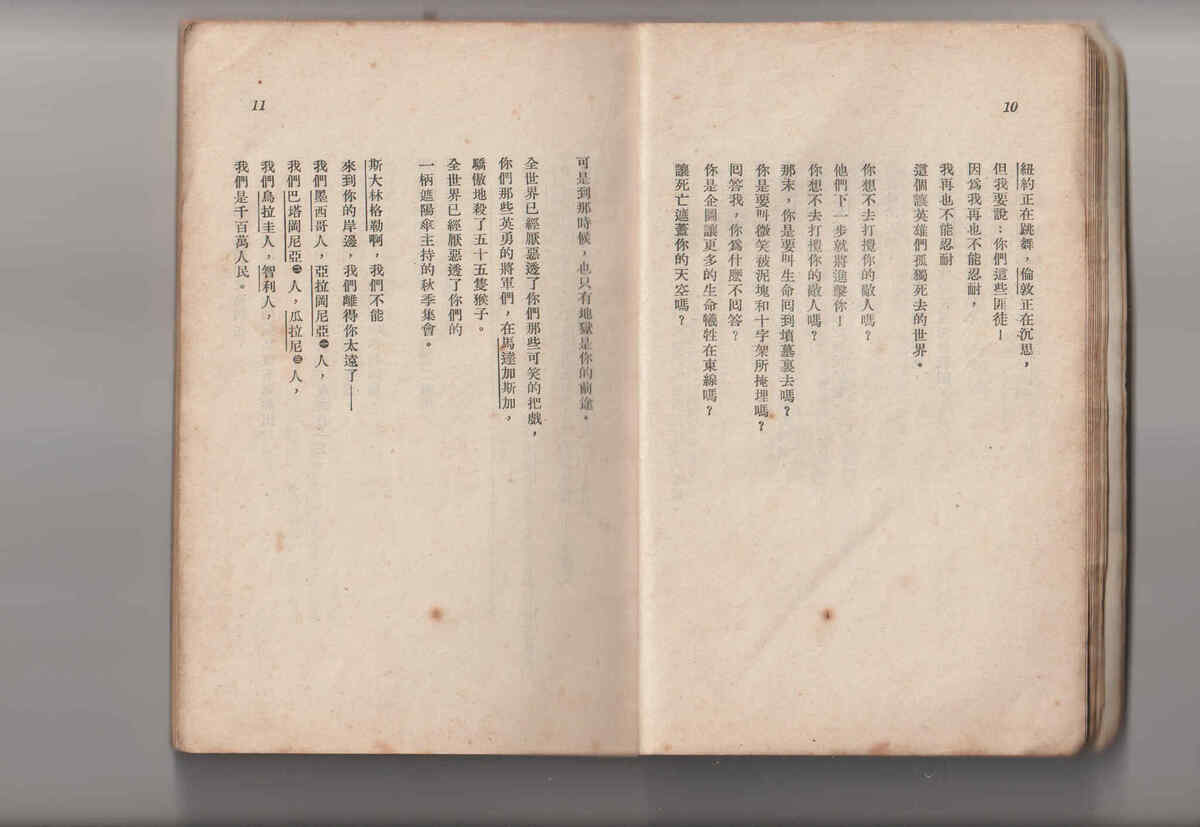 10
紐約正在跳舞，倫敦正在沉思，
但我要說：你們這些匪徒！
因爲我再也不能忍耐，
我再也不能忍耐
這個讓英雄們孤獨死去的世界。
你想不去打攪你的敵人嗎？
他們下一步就將進擊你！
你想不去打攪你的敵人嗎？
那末，你是要叫生命囘到墳墓裏去嗎？
你是要叫微笑被泥塊和十字架所掩埋嗎？
囘答我，你爲什麽不囘答？
你是企圖讓更多的生命犧牲在東線嗎？
讓死亡遮蓋你的天空嗎？
11
可是到那時候，也只有地獄是你的前途。
全世界已經厭惡透了你們那些可笑的把戲，
你們那些英勇的將軍們，在馬達加斯加，
驕傲地殺了五十五隻猴子。
全世界已經厭惡透了你們的
一柄遮陽傘主持的秋季集會。
斯大林格勒啊，我們不能
來到你的岸邊，我們離得你太遠了——
我們墨西哥人，亞拉岡尼亞㊀人，
我們巴塔岡尼亞㊁人，瓜拉尼㊂人，
我們烏拉圭人，智利人，
我們是千百萬人民。